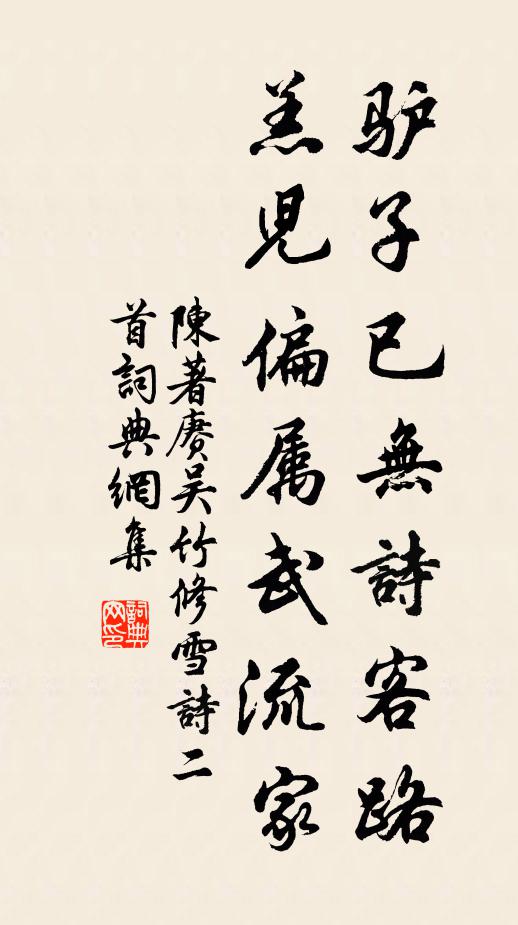 驴子已無詩客路
羔児偏属武流家
陳著赓吴竹修雪詩二
首詞典網集
詞典网印